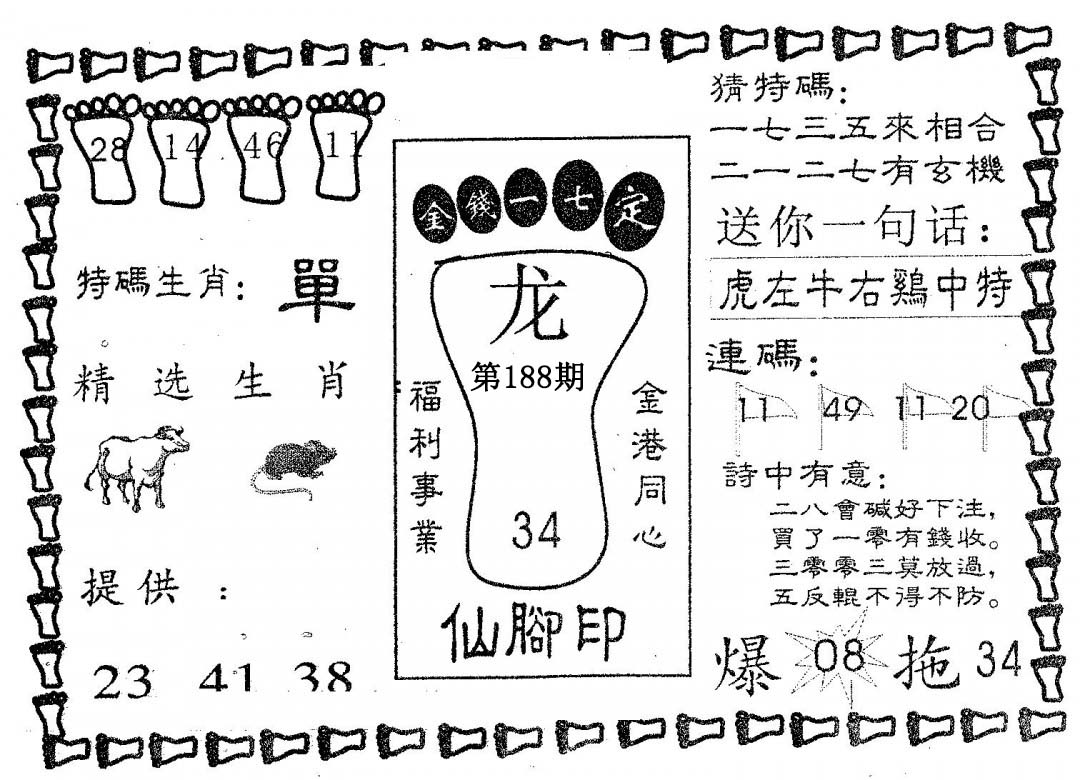 28 14 46 11
特碼生肖：單
精选生肖
提供：
23 41 38
金錢一七定
龙
第188期
福利事業
金港同心
34
仙腳印
猜特碼：
一七三五來相合
二一二七有玄機
送你一句话：
虎左牛右鷄中特
連碼：
11 49 11 20
詩中有意：
二八會碱好下注，
買了一零有錢收。
三零零三莫放過，
五反輥不得不防。
爆 08 拖 34